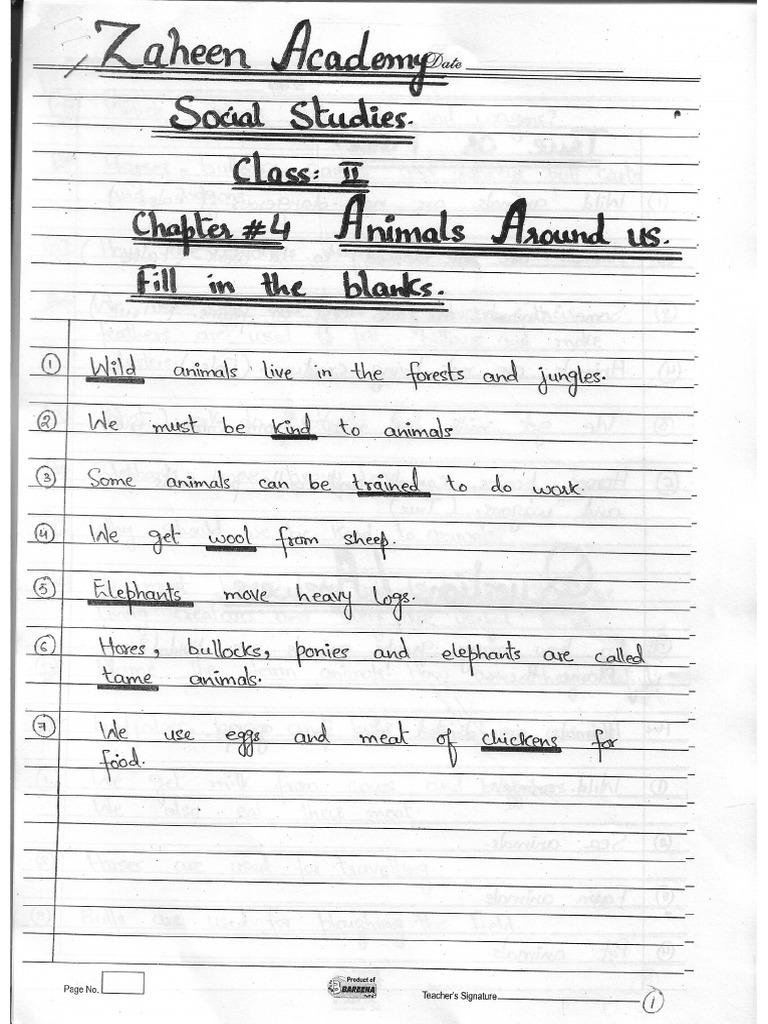 Zaheen Academy Date
Social Studies.
Class: II
Chapter #4 Animals Around us.
Fill in the blanks.
① Wild animals live in the forests and jungles.
② We must be kind to animals
③ Some animals can be trained to do work.
④ We get wool from sheep.
⑤ Elephants move heavy logs.
⑥ Hores, bullocks, ponies and elephants are called
tame animals.
⑦ We use eggs and meat of chickens for
food.
Page No.
Product of
BAREENA
Teacher's Signature
①